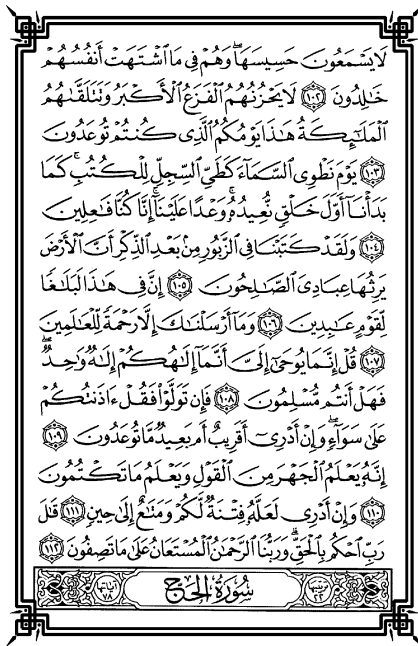 لَا يَسْمَعُونَ حَسِيسَهَا ۖ وَهُمْ فِى مَا ٱشْتَهَتْ أَنفُسُهُمْ
خَٰلِدُونَ ١٠٢ لَا يَحْزُنُهُمُ ٱلْفَزَعُ ٱلْأَكْبَرُ وَتَتَلَقَّىٰهُمُ
ٱلْمَلَٰٓئِكَةُ هَٰذَا يَوْمُكُمُ ٱلَّذِى كُنتُمْ تُوعَدُونَ
١٠٣ يَوْمَ نَطْوِى ٱلسَّمَآءَ كَطَىِّ ٱلسِّجِلِّ لِلْكُتُبِ ۚ كَمَا
بَدَأْنَآ أَوَّلَ خَلْقٍ نُّعِيدُهُۥ ۚ وَعْدًا عَلَيْنَآ ۚ إِنَّا كُنَّا فَٰعِلِينَ
١٠٤ وَلَقَدْ كَتَبْنَا فِى ٱلزَّبُورِ مِنۢ بَعْدِ ٱلذِّكْرِ أَنَّ ٱلْأَرْضَ
يَرِثُهَا عِبَادِىَ ٱلصَّٰلِحُونَ ١٠٥ إِنَّ فِى هَٰذَا لَبَلَٰغًا
لِّقَوْمٍ عَٰبِدِينَ ١٠٦ وَمَآ أَرْسَلْنَٰكَ إِلَّا رَحْمَةً لِّلْعَٰلَمِينَ
١٠٧ قُلْ إِنَّمَا يُوحَىٰٓ إِلَىَّ أَنَّمَآ إِلَٰهُكُمْ إِلَٰهٌ وَٰحِدٌ ۖ
فَهَلْ أَنتُم مُّسْلِمُونَ ١٠٨ فَإِن تَوَلَّوْا۟ فَقُلْ ءَاذَنتُكُمْ
عَلَىٰ سَوَآءٍ ۖ وَإِنْ أَدْرِىٓ أَقَرِيبٌ أَم بَعِيدٌ مَّا تُوعَدُونَ ١٠٩
إِنَّهُۥ يَعْلَمُ ٱلْجَهْرَ مِنَ ٱلْقَوْلِ وَيَعْلَمُ مَا تَكْتُمُونَ
١١٠ وَإِنْ أَدْرِى لَعَلَّهُۥ فِتْنَةٌ لَّكُمْ وَمَتَٰعٌ إِلَىٰ حِينٍ ١١١ قَٰلَ
رَبِّ ٱحْكُم بِٱلْحَقِّ ۗ وَرَبُّنَا ٱلرَّحْمَٰنُ ٱلْمُسْتَعَانُ عَلَىٰ مَا تَصِفُونَ ١١٢
ترتيبها ٢٢ سُورَةُ الحَجّ آياتها ٧٨